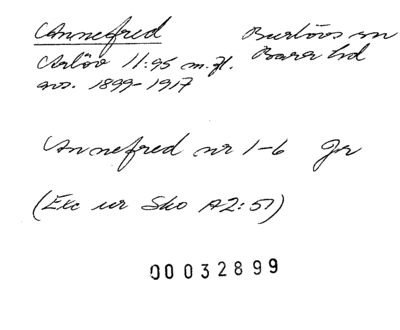 Annefred
Burlövs sn
Arlöv 11:95 m.fl.
Bara hd
avs. 1899-1917
Annefred nr 1-6 Gr
(Exc ur Sko A2:57)
00032899